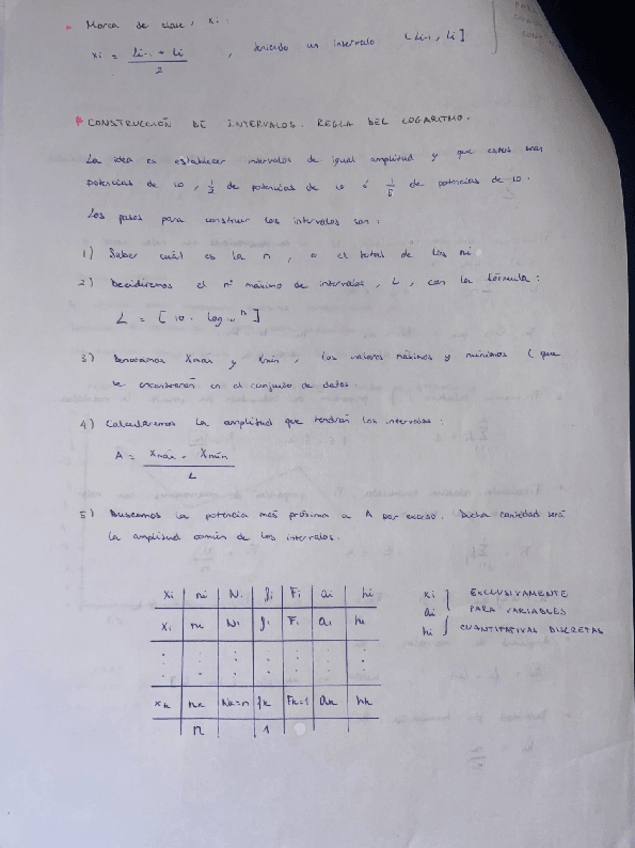 Marca de clase, xi.
xi = Li-1 + Li / 2 , teniendo un intervalo (Li-1, Li]
CONSTRUCCIÓN DE INTERVALOS. REGLA DEL LOGARITMO.
La idea es establecer intervalos de igual amplitud y que estos sean
potencias de 10, 1/2 de potencias de 10 ó 1/5 de potencias de 10.
Los pasos para construir los intervalos son:
1) Saber cuál es la n, o el total de los ni
2) Decidiremos el nº máximo de intervalos, L, con la fórmula:
L = [10 · log10 n]
3) Denotamos Xmax y Xmin, los valores máximos y mínimos (que
se encontrarán en el conjunto de datos
4) Calcularemos la amplitud que tendrán los intervalos:
A = Xmáx - Xmín / L
5) Buscamos la potencia más próxima a A por exceso. Dicha cantidad será
la amplitud común de los intervalos.
xi ni Ni fi Fi ai hi
x1 n1 N1 f1 F1 a1 h1
: : : : : : :
xk nk Nk=n fk Fk=1 ak hk
n 1
xi EXCLUSIVAMENTE
ai PARA VARIABLES
hi CUANTITATIVAS DISCRETAS